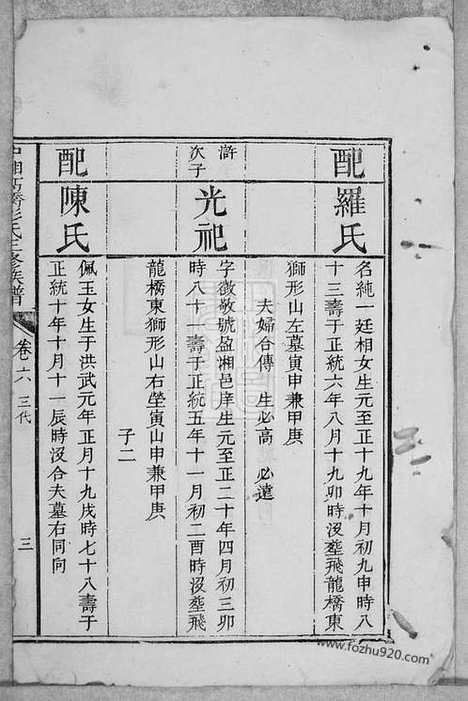 配羅氏
名純一廷相女生元至正十九年十月初九申時八
十三壽于正統六年八月十九卯時沒塟飛龍橋東
獅形山左墓寅申兼甲庚
夫婦合傳　生必高　必達
滸次子
光祀
字徵敬號盈湘邑庠生元至正二十年四月初三卯
時八十一壽于正統五年十一月初二酉時沒塟飛
龍橋東獅形山右塋寅山申兼甲庚
子二
配陳氏
佩玉女生于洪武元年正月十九戌時七十八壽于
正統十年十月十一辰時沒合夫墓右同向
氏三修族譜
卷六
三代
三
www.fozhu920.com